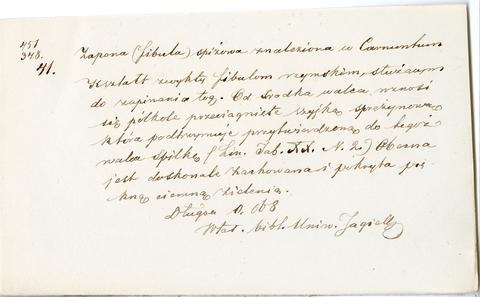 451
348.
41.
Zapona (fibula) spiżowa znaleziona w Carnuntum
Kształt zwykły fibulom rzymskim, służącym
do zapinania tog. Od środka walca wznosi
się półkole przeciągnięte szyjką sprężynową
która podtrzymuje przytwierdzoną do tegoż
walca szpilkę (Lin. Tab. XX. N. 2.) Obecna
jest doskonale zachowana i pokryta pię
kną ciemną zielenią.
Długość 0,068
Włas. bibl. Uniw. Jagiell.